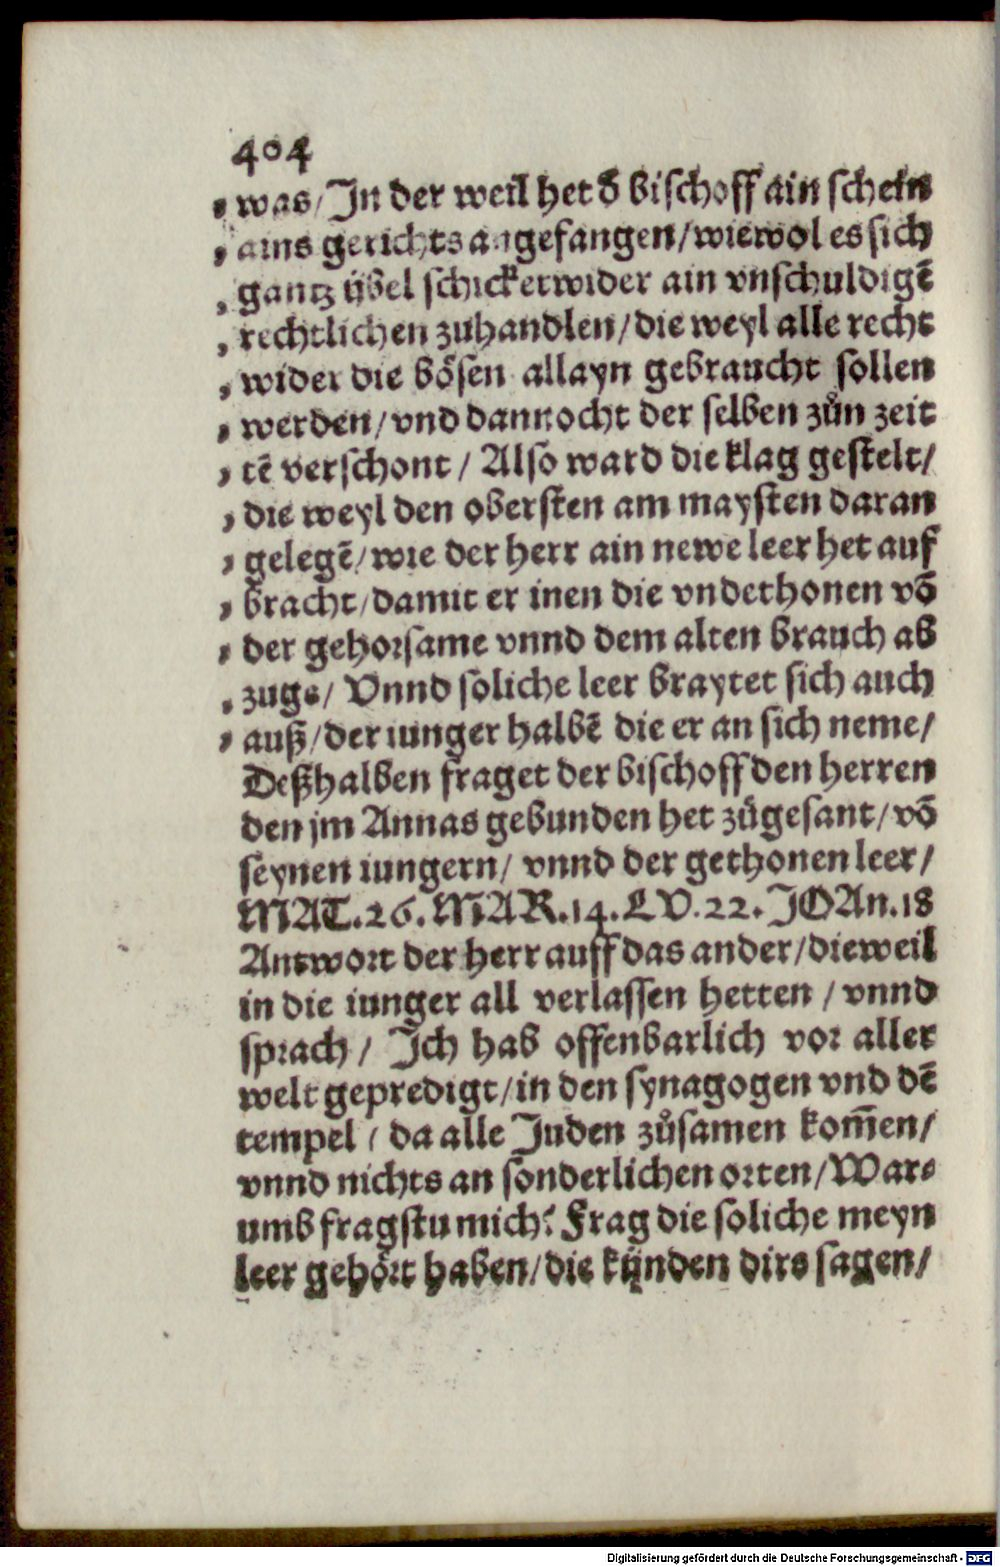 404
, was/ Jn der weil het d̄ bischoff ain schein
, ains gerichts angefangen/ wiewol es sich
, gantz ybel schicket wider ain vnschuldigē
, rechtlichen zuhandlen/ die weyl alle recht
, wider die bösen allayn gebraucht sollen
, werden/ vnd dannocht der selben zůn zeit
, tē verschont / Also ward die klag gestelt/
, die weyl den obersten am maysten daran
, gelegē/ wie der herr ain newe leer het auf
, bracht/ damit er inen die vndethonen vō
, der gehorsame vnnd dem alten brauch ab
, zuge/ Vnnd soliche leer braytet sich auch
, auß/ der iunger halbē die er an sich neme/
Deßhalben fraget der bischoff den herren
den jm Annas gebunden het zůgesant/ vō
seynen iungern/ vnnd der gethonen leer/
MAT.26. MAR.14. LV.22. JOAn.18
Antwort der herr auff das ander/ dieweil
in die iunger all verlassen hetten / vnnd
sprach / Jch hab offenbarlich vor aller
welt gepredigt/ in den synagogen vnd dē
tempel / da alle Juden zůsamen kom̄en/
vnnd nichts an sonderlichen orten/ War⸗
umb fragstu mich? Frag die soliche meyn
leer gehört haben/ die kynden dirs sagen/
Digitalisierung gefördert durch die Deutsche Forschungsgemeinschaft - DFG